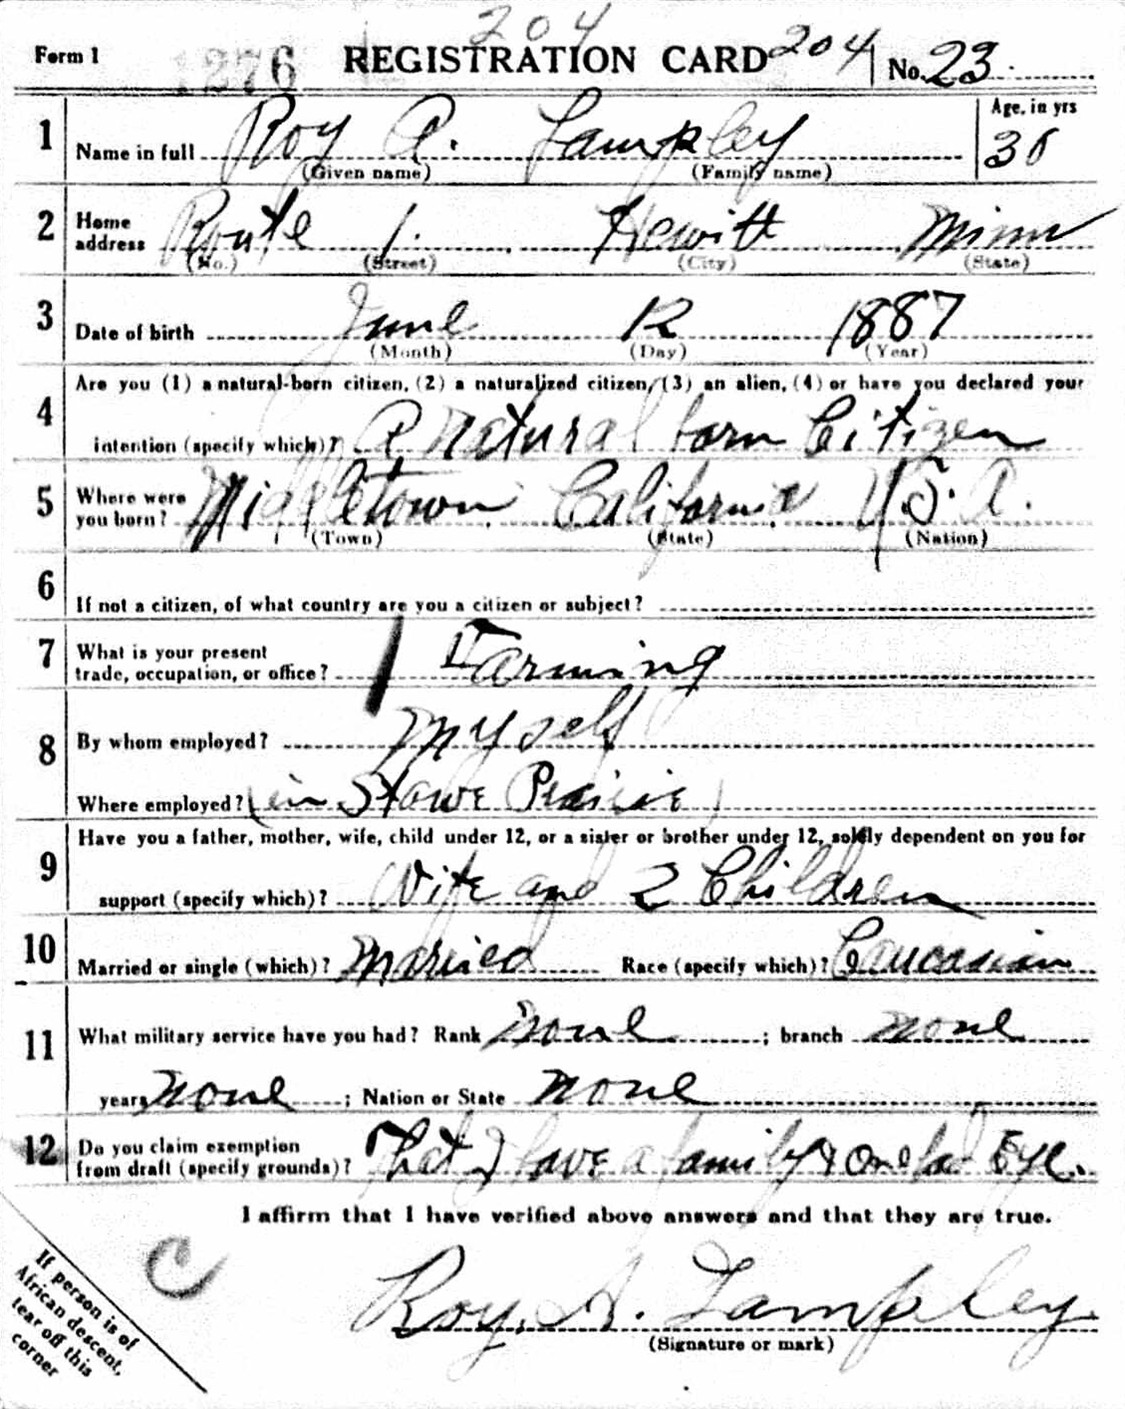 204
Form 1 1276 REGISTRATION CARD 204 No. 23
1 Name in full Roy A. Lampley Age, in yrs 30
(Given name) (Family name)
2 Home address Route 1. Hewitt Minn
(No.) (Street) (City) (State)
3 Date of birth June 12 1887
(Month) (Day) (Year)
4 Are you (1) a natural-born citizen, (2) a naturalized citizen, (3) an alien, (4) or have you declared your
intention (specify which)? A natural born Citizen
5 Where were you born? Middletown California U.S.A.
(Town) (State) (Nation)
6 If not a citizen, of what country are you a citizen or subject?
7 What is your present
trade, occupation, or office? Farming
8 By whom employed? Myself
Where employed? (in Stowe Prairie)
9 Have you a father, mother, wife, child under 12, or a sister or brother under 12, solely dependent on you for
support (specify which)? Wife and 2 Children
10 Married or single (which)? Married Race (specify which)? Caucasian
11 What military service have you had? Rank none ; branch none
years none ; Nation or State none
12 Do you claim exemption
from draft (specify grounds)? That I have a family & one bad Eye.
I affirm that I have verified above answers and that they are true.
C
Roy. A. Lampley
(Signature or mark)
If person is of
African descent,
tear off this
corner